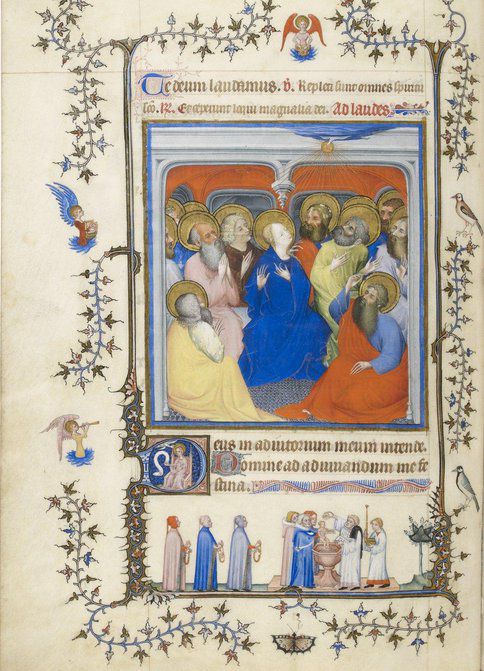 Te deum laudamus. v. Repleti sunt omnes spiritu
sco. R. Et ceperunt loqui magnalia dei. Ad laudes.
Deus in adiutorium meum intende.
Domine ad adiuuandum me fe
stina.